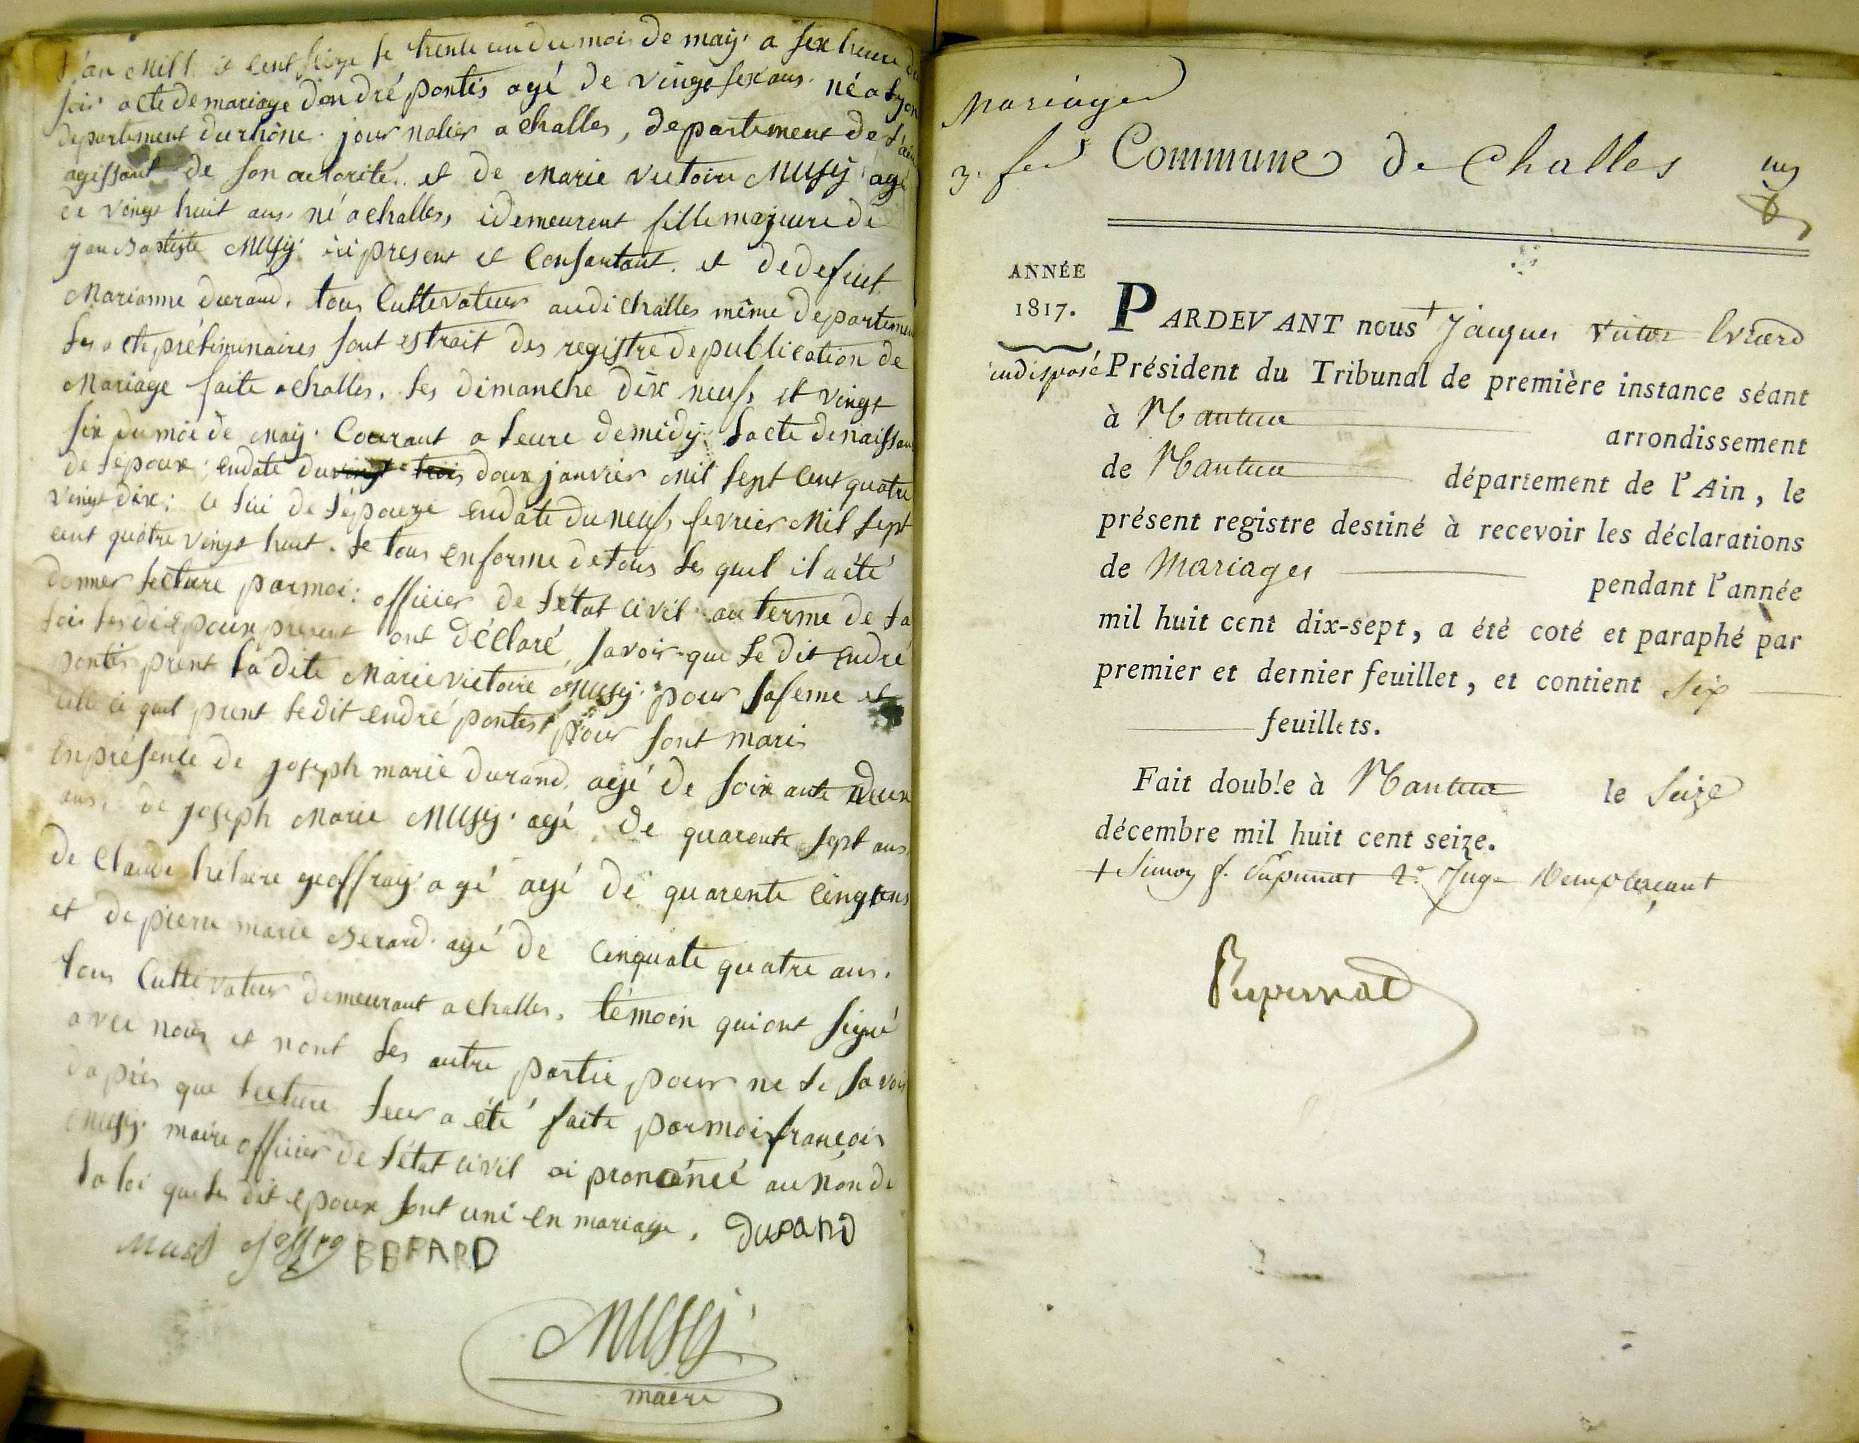 L'an Mill et cent seize le trente un du mois de may. a six heure du
soir acte de mariage dendré pontés agé de vingt six ans. né a lyon
departement durhône. journalier a challes, departement de l'ain
agissant de son autorité. et de Marie victoire Musy agé
de vingt huit ans. né a challes, idemeurent fille majeure de
jan Baptiste Musy. ici present et Consantant. et de defeut
Marianne durand. tous Cultivateur audi challes même departement
les acte préliminaires sont estrait des registre de publication de
Mariage faite a challes. les dimanche dix neuf, et vingt
six du moi de may. Courant a leure demidy. lacte de naissan
de lepoux; endate du vingt trois doux janvier Mil sept cent quatre
vingt dix; ce lui de l'epouze endate du neuf, fevrier Mil sept
cent quatre vingt huit. le tous enforme de tous les quel il a été
donner lecture parmoi: officier de l'état civil au terme de la
lois les di epoux present ont déclaré, savoir que le dit endré
pontés prent la dite Marie victoire Musy. pour safeme et
celle ci quel prent ledit endré pontés pour sont maris
En presence de joseph marie durand agé de soixante deux
ans. de joseph Marie Musy. agé de quarente sept ans.
de Claude helaire geoffray agé agé de quarente cinq ans
et de pierre marie Berard. agé de cinquate quatre ans.
tous Cultivateur demeurant a challes. témoin qui ont signé
avec nous et nont les autre partie pour ne le savoir
dapiès que lecture leur a été faite parmoi françois
Musy. maire officier de l'état civil ai prononcé au non de
la loi que les dit epoux sont uni en mariage. DURAND
Musi Joffre BERARD
MUSY
maire
Mariages
3. fet Commune de Challes
ANNÉE
1817.
PARDEVANT nous + Jacques Victor Evrard
indisposé Président du Tribunal de première instance séant
à Nantua arrondissement
de Nantua département de l'Ain, le
présent registre destiné à recevoir les déclarations
de Mariages pendant l'année
mil huit cent dix-sept, a été coté et paraphé par
premier et dernier feuillet, et contient Six
feuillets.
Fait double à Nantua le Seize
décembre mil huit cent seize.
+ Simon f. Rupinat 2e Juge Remplaçant
Rupinat